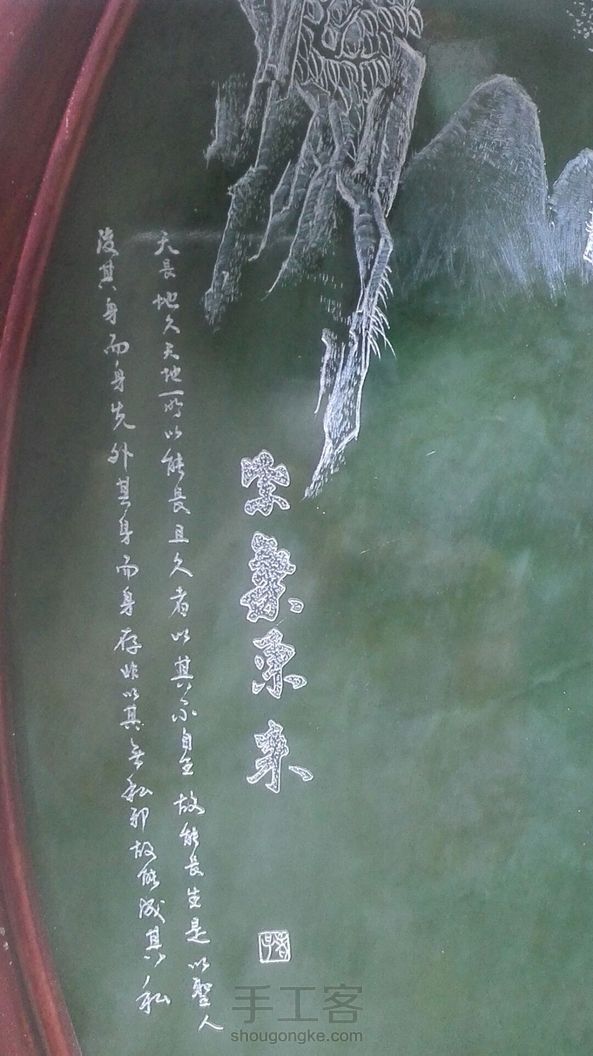 紫氣東來
天長地久天地所以能長且久者以其不自生故能長生是以聖人
後其身而身先外其身而身存非以其無私邪故能成其私
手工客
shougongke.com